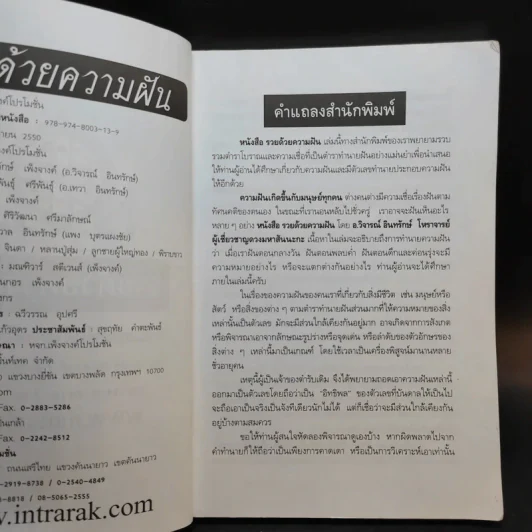 ด้วยความฝัน
งค์โปรโมชัน
หนังสือ : 978-974-8003-13-9
ายน 2550
งค์โปรโมชั่น
ักษ์ เพ็งจางค์ (อ.วิจารณ์ อินทรักษ์)
พันธุ์ ศรีพันธุ์ (อ.เทวา อินทรักษ์)
เพ็งจางค์
ศิริวัฒนา ศรีมาลักษณ์
วาล อินทรักษ์ (แพง บุตรแผงชัย)
จินดา / หลานปู่สุ่ม / ลูกชายผู้ใหญ่ทอง /
: มณฑิวาร์ สตีเวนส์ (เพ็งจางค์)
นกอร เพ็งจางค์
กร
ร : ฉวีวรรณ อุปศรี
แก้วอุดร ประชาสัมพันธ์ : สุขฤทัย คำตะพันธ์
ณา : หจก.เพ็งจางค์โปรโมชั่น
ริ้นท์เทค จำกัด
แขวงบางยี่ขัน เขตบางพลัด กรุงเทพฯ 10700
Fax. 0-2883-5286
ปิ่นเกล้า
Fax. 0-2242-8512
มชั่น
ถนนเสรีไทย แขวงคันนายาว เขตคันนายาว
-2919-8738 / 0-2540-4849
-8818 / 08-5065-2555
w.intrarak.com
คำแถลงสำนักพิมพ์
หนังสือ รวยด้วยความฝัน เล่มนี้ทางสำนักพิมพ์ของเราพยายามรวบ
รวมตำราโบราณและความเชื่อที่เป็นตำราทำนายฝันอย่างแม่นยำเพื่อนำเสนอ
ให้ท่านผู้อ่านได้ศึกษาเกี่ยวกับความฝันและมีตัวเลขทำนายประกอบความฝัน
ให้อีกด้วย
ความฝันเกิดขึ้นกับมนุษย์ทุกคน ต่างคนต่างมีความเชื่อเรื่องฝันตาม
ทัศนคติของตนเอง ในขณะที่เรานอนหลับไปชั่วครู่ เราอาจจะฝันเห็นอะไร
หลายๆ อย่าง หนังสือ รวยด้วยความฝัน โดย อ.วิจารณ์ อินทรักษ์ โหราจารย์
ผู้เชี่ยวชาญดวงมหาสันนะกะ เนื้อหาในเล่มจะอธิบายถึงการทำนายความฝัน
ว่า เมื่อเราฝันตอนกลางวัน ฝันตอนพลบค่ำ ฝันตอนดึกและค่อนรุ่งจะมี
ความหมายอย่างไร หรือจะแตกต่างกันอย่างไร ท่านผู้อ่านจะได้ศึกษา
ภายในเล่มนี้ครับ
ในเรื่องของความฝันของคนเราที่เกี่ยวกับสิ่งมีชีวิต เช่น มนุษย์หรือ
สัตว์ หรือสิ่งของต่าง ๆ ตามตำราทำนายฝันส่วนมากที่ให้ความหมายของสิ่ง
เหล่านั้นเป็นตัวเลข มักจะมีส่วนใกล้เคียงกันอยู่มาก อาจเกิดจากการสังเกต
หรือพิจารณาเอาจากลักษณะรูปร่างหรือจุดเด่น หรือลำดับของตัวอักษรของ
สิ่งต่าง ๆ เหล่านี้มาเป็นเกณฑ์ โดยใช้เวลาเป็นเครื่องพิสูจน์มานานหลาย
ชั่วอายุคน
เหตุนี้ผู้เป็นเจ้าของตำรับเดิม จึงได้พยายามถอดเอาความฝันเหล่านี้
ออกมาเป็นตัวเลขโดยถือว่าเป็น "อิทธิพล" ของตัวเลขที่บันดาลให้เป็นไป
จะถือเอาเป็นจริงเป็นจังทีเดียวนักไม่ได้ แต่ก็เชื่อว่าจะมีส่วนใกล้เคียงกัน
อยู่บ้างตามสมควร
ขอให้ท่านผู้สนใจหัดลองพิจารณาดูเองบ้าง หากผิดพลาดไปจาก
คำทำนายก็ให้ถือว่าเป็นเพียงการคาดเดา หรือเป็นการวิเคราะห์เอาเท่านั้น